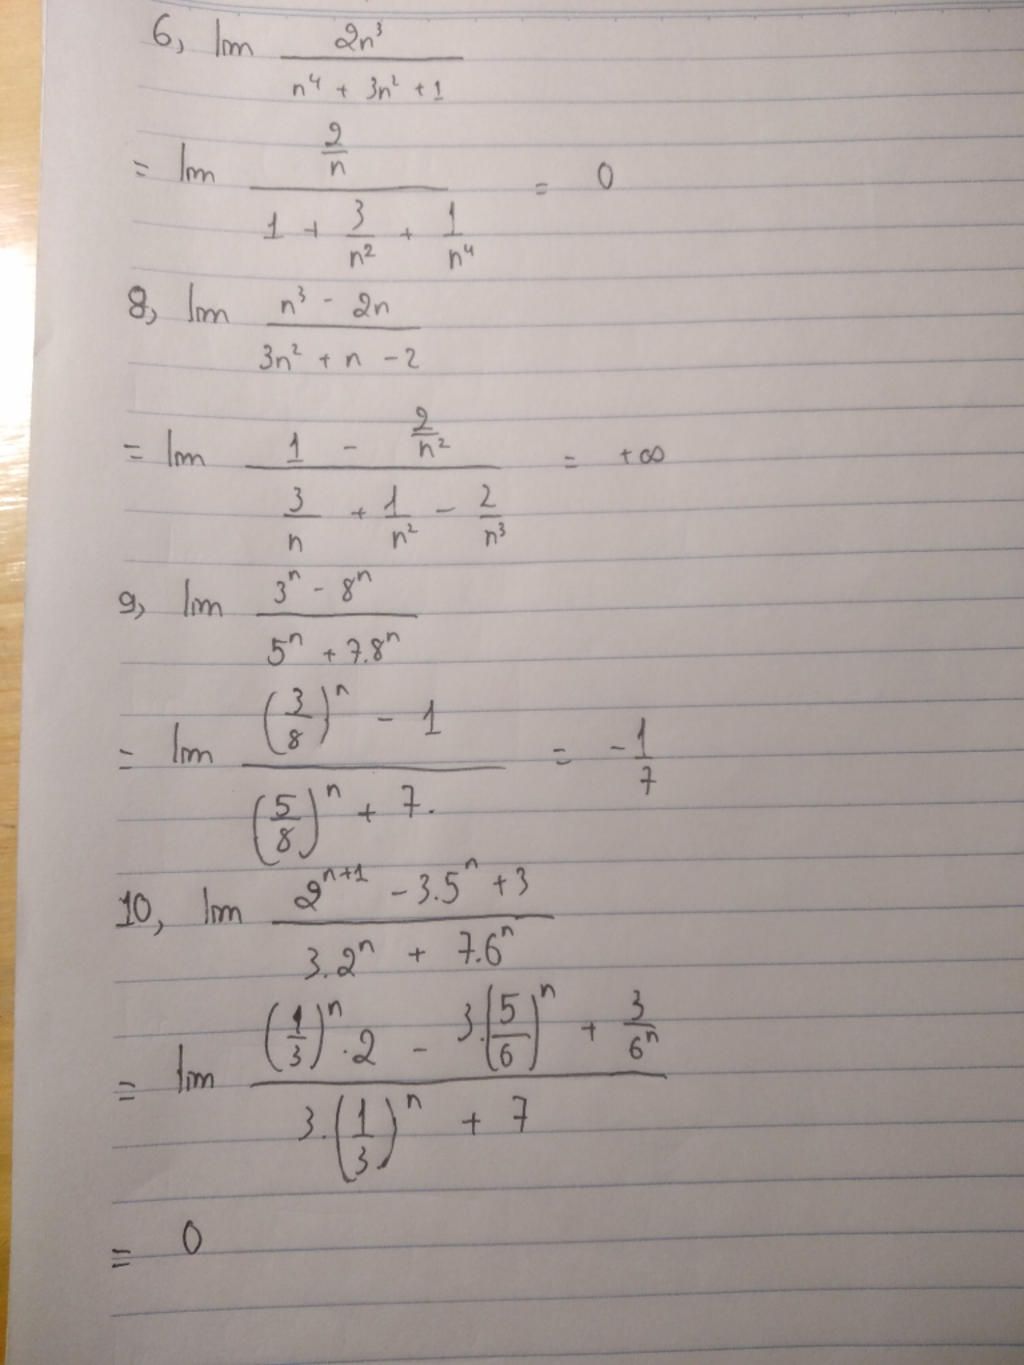 6, lim \frac{2n^3}{n^4 + 3n^2 + 1}
= lim \frac{\frac{2}{n}}{1 + \frac{3}{n^2} + \frac{1}{n^4}} = 0
8, lim \frac{n^3 - 2n}{3n^2 + n - 2}
= lim \frac{1 - \frac{2}{n^2}}{\frac{3}{n} + \frac{1}{n^2} - \frac{2}{n^3}} = +∞
9, lim \frac{3^n - 8^n}{5^n + 7.8^n}
= lim \frac{(\frac{3}{8})^n - 1}{(\frac{5}{8})^n + 7.} = -\frac{1}{7}
10, lim \frac{2^{n+1} - 3.5^n + 3}{3.2^n + 7.6^n}
= lim \frac{(\frac{1}{3})^n .2 - 3.(\frac{5}{6})^n + \frac{3}{6^n}}{3.(\frac{1}{3})^n + 7}
= 0